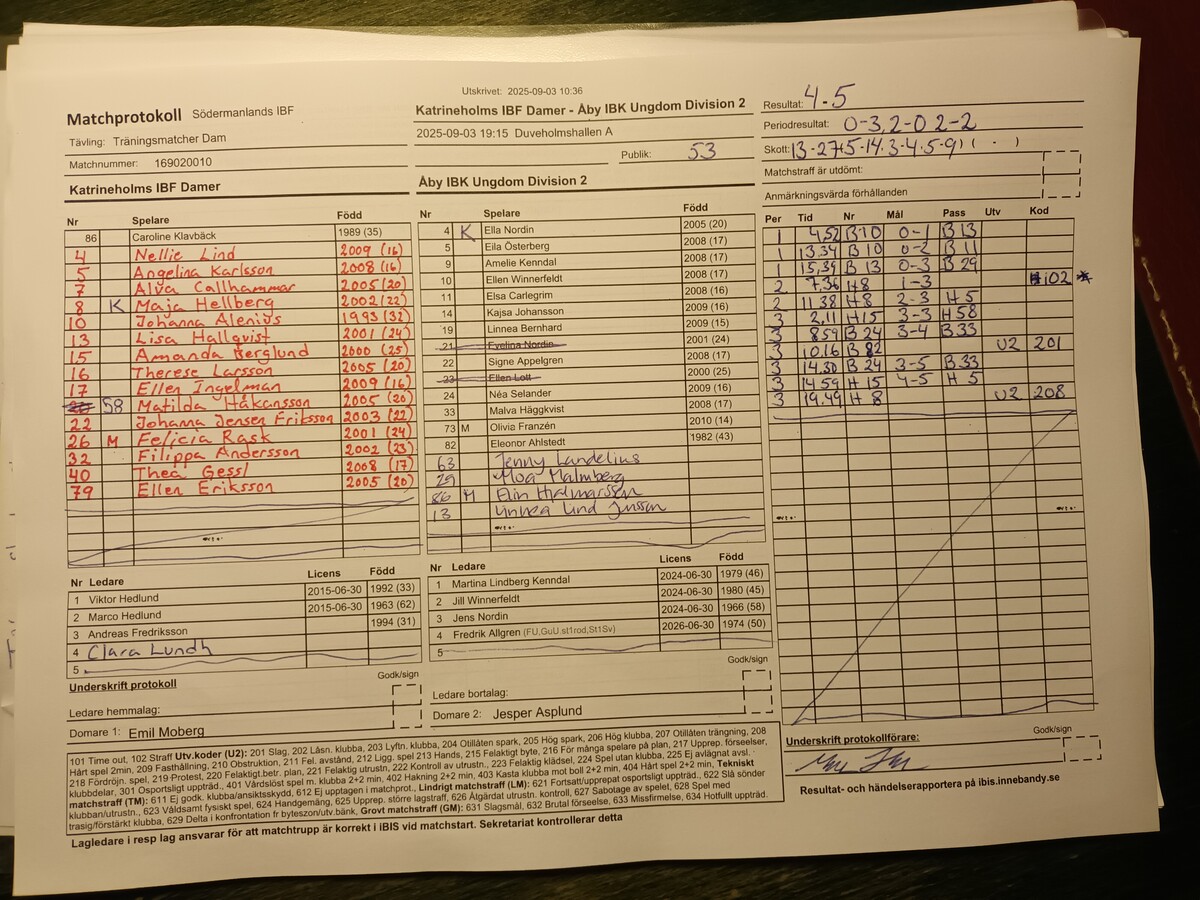 Utskrivet: 2025-09-03 10:36
Matchprotokoll Södermanlands IBF
Tävling: Träningsmatcher Dam
Matchnummer: 169020010
Katrineholms IBF Damer - Åby IBK Ungdom Division 2
2025-09-03 19:15 Duveholmshallen A
Publik: 53
Resultat: 4-5
Periodresultat: 0-3, 2-0 2-2
Skott: 13-27(5-14, 3-4, 5-9) ( . )
Matchstraff är utdömt:
Anmärkningsvärda förhållanden
Katrineholms IBF Damer
Nr Spelare Född
86 Caroline Klavbäck 1989 (35)
4 Nellie Lind 2009 (16)
5 Angelina Karlsson 2008 (16)
7 Alva Callhammar 2005 (20)
8 K Maja Hellberg 2002 (22)
10 Johanna Alenius 1993 (32)
13 Lisa Hallqvist 2001 (24)
15 Amanda Berglund 2000 (25)
16 Therese Larsson 2005 (20)
17 Ellen Ingelman 2009 (16)
58 Matilda Håkansson 2005 (20)
22 Johanna Jensen Friksson 2003 (22)
26 M Felicia Rask 2001 (24)
32 Filippa Andersson 2002 (23)
40 Thea Gessl 2008 (17)
79 Ellen Eriksson 2005 (20)
Åby IBK Ungdom Division 2
Nr Spelare Född
4 K Ella Nordin 2005 (20)
5 Eila Österberg 2008 (17)
9 Amelie Kenndal 2008 (17)
10 Ellen Winnerfeldt 2008 (17)
11 Elsa Carlegrim 2008 (16)
14 Kajsa Johansson 2009 (16)
19 Linnea Bernhard 2009 (15)
21 Evelina Nordin 2001 (24)
22 Signe Appelgren 2008 (17)
23 Ellen Lott 2000 (25)
24 Néa Selander 2009 (16)
33 Malva Häggkvist 2008 (17)
73 M Olivia Franzén 2010 (14)
82 Eleonor Ahlstedt 1982 (43)
63 Jenny Landelius
29 Moa Malmberg
86 M Elin Hjalmarsson
13 Linnea Lind Jonsson
Per Tid Nr Mål Pass Utv Kod
1 4,52 B 10 0-1 B 13
1 13,34 B 10 0-2 B 11
1 15,39 B 13 0-3 B 29
2 7,36 H 8 1-3 102 *
2 11.38 H 8 2-3 H 5
3 2,11 H 15 3-3 H 58
3 8.59 B 24 3-4 B 33
3 10.16 B 82 U2 201
3 14.30 B 24 3-5 B.33
3 14.59 H 15 4-5 H 5
3 19.49 H 8 U2 208
Nr Ledare Licens Född
1 Viktor Hedlund 2015-06-30 1992 (33)
2 Marco Hedlund 2015-06-30 1963 (62)
3 Andreas Fredriksson 1994 (31)
4 Clara Lundh
5
Nr Ledare Licens Född
1 Martina Lindberg Kenndal 2024-06-30 1979 (46)
2 Jill Winnerfeldt 2024-06-30 1980 (45)
3 Jens Nordin 2024-06-30 1966 (58)
4 Fredrik Allgren (FU,GuU.st1rod,St1Sv) 2026-06-30 1974 (50)
5
Underskrift protokoll Godk/sign
Ledare hemmalag:
Domare 1: Emil Moberg
Godk/sign
Ledare bortalag:
Domare 2: Jesper Asplund
Underskrift protokollförare: Godk/sign
Resultat- och händelserapportera på ibis.innebandy.se
101 Time out, 102 Straff Utv.koder (U2): 201 Slag, 202 Låsn. klubba, 203 Lyftn. klubba, 204 Otillåten spark, 205 Hög spark, 206 Hög klubba, 207 Otillåten trängning, 208
Hårt spel 2min, 209 Fasthållning, 210 Obstruktion, 211 Fel. avstånd, 212 Ligg. spel 213 Hands, 215 Felaktigt byte, 216 För många spelare på plan, 217 Upprep. förseelser,
218 Fördröjn. spel, 219 Protest, 220 Felaktigt.betr. plan, 221 Felaktig utrustn, 222 Kontroll av utrustn., 223 Felaktig klädsel, 224 Spel utan klubba, 225 Ej avlägnat avsl.
klubbdelar, 301 Osportsligt uppträd., 401 Vårdslöst spel m. klubba 2+2 min, 402 Hakning 2+2 min, 403 Kasta klubba mot boll 2+2 min, 404 Hårt spel 2+2 min, Tekniskt
matchstraff (TM): 611 Ej godk. klubba/ansiktsskydd, 612 Ej upptagen i matchprot., Lindrigt matchstraff (LM): 621 Fortsatt/upprepat osportsligt uppträd., 622 Slå sönder
klubban/utrustn., 623 Våldsamt fysiskt spel, 624 Handgemäng, 625 Upprep. större lagstraff, 626 Åtgärdat utrustn. kontroll, 627 Sabotage av spelet, 628 Spel med
trasig/förstärkt klubba, 629 Delta i konfrontation fr byteszon/utv.bänk, Grovt matchstraff (GM): 631 Slagsmål, 632 Brutal förseelse, 633 Missfirmelse, 634 Hotfullt uppträd.
Lagledare i resp lag ansvarar för att matchtrupp är korrekt i iBIS vid matchstart. Sekretariat kontrollerar detta